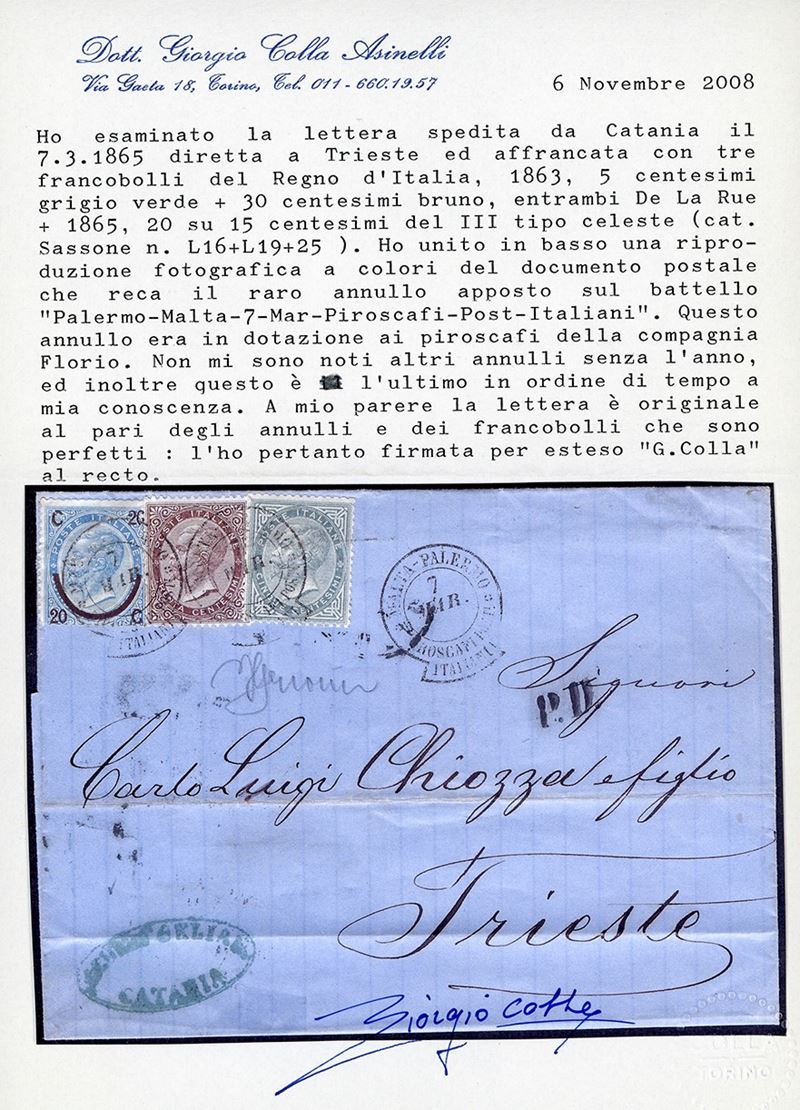 Dott. Giorgio Colla Asinelli
Via Gaeta 18, Torino, Tel. 011 - 660.19.57
6 Novembre 2008
Ho esaminato la lettera spedita da Catania il
7.3.1865 diretta a Trieste ed affrancata con tre
francobolli del Regno d'Italia, 1863, 5 centesimi
grigio verde + 30 centesimi bruno, entrambi De La Rue
+ 1865, 20 su 15 centesimi del III tipo celeste (cat.
Sassone n. L16+L19+25 ). Ho unito in basso una ripro-
duzione fotografica a colori del documento postale
che reca il raro annullo apposto sul battello
"Palermo-Malta-7-Mar-Piroscafi-Post-Italiani". Questo
annullo era in dotazione ai piroscafi della compagnia
Florio. Non mi sono noti altri annulli senza l'anno,
ed inoltre questo è l'ultimo in ordine di tempo a
mia conoscenza. A mio parere la lettera è originale
al pari degli annulli e dei francobolli che sono
perfetti : l'ho pertanto firmata per esteso "G.Colla"
al recto.
C 20
POSTE ITALIANE
20 C
POSTE ITALIANE
CENTESIMI
POSTE ITALIANE
CENTESIMI
7
MAR.
ITALIANI
MALTA-PALERMO
7
MAR.
PIROSCAFI
ITALIANI
Signori
P.D
Carlo Luigi Chiozza e figlio
Trieste
CATANIA
Giorgio Colla
COLLA
TORINO